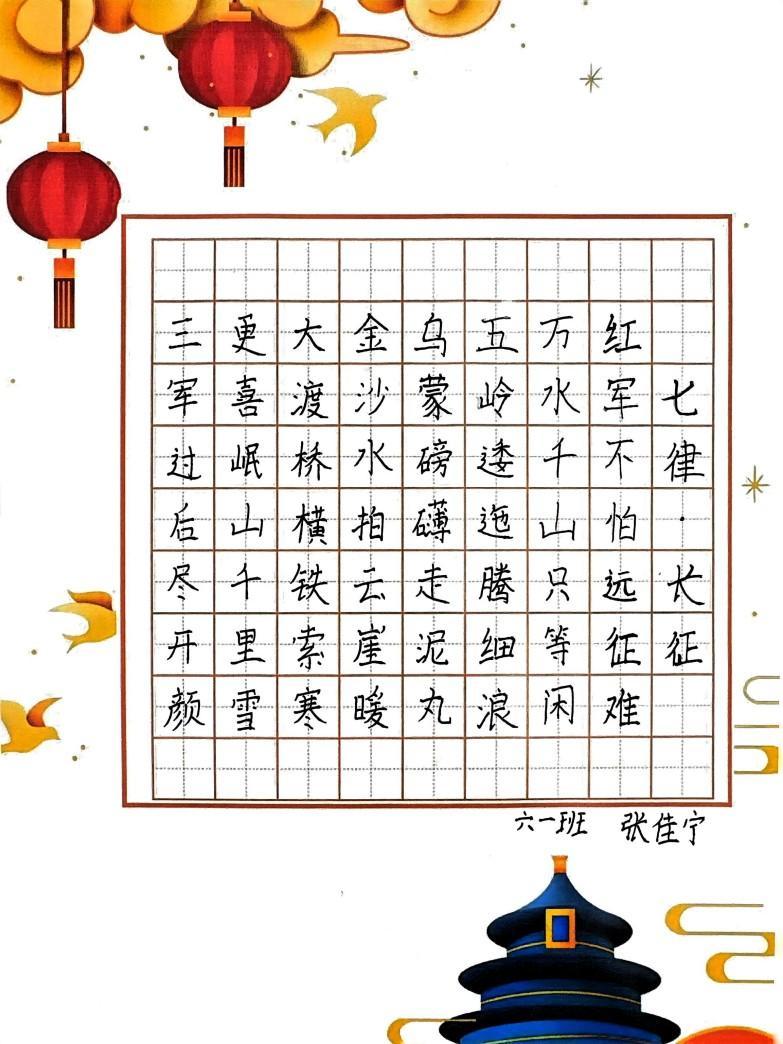 七律·长征
红军不怕远征难
万水千山只等闲
五岭逶迤腾细浪
乌蒙磅礴走泥丸
金沙水拍云崖暖
大渡桥横铁索寒
更喜岷山千里雪
三军过后尽开颜
六一班 张佳宁